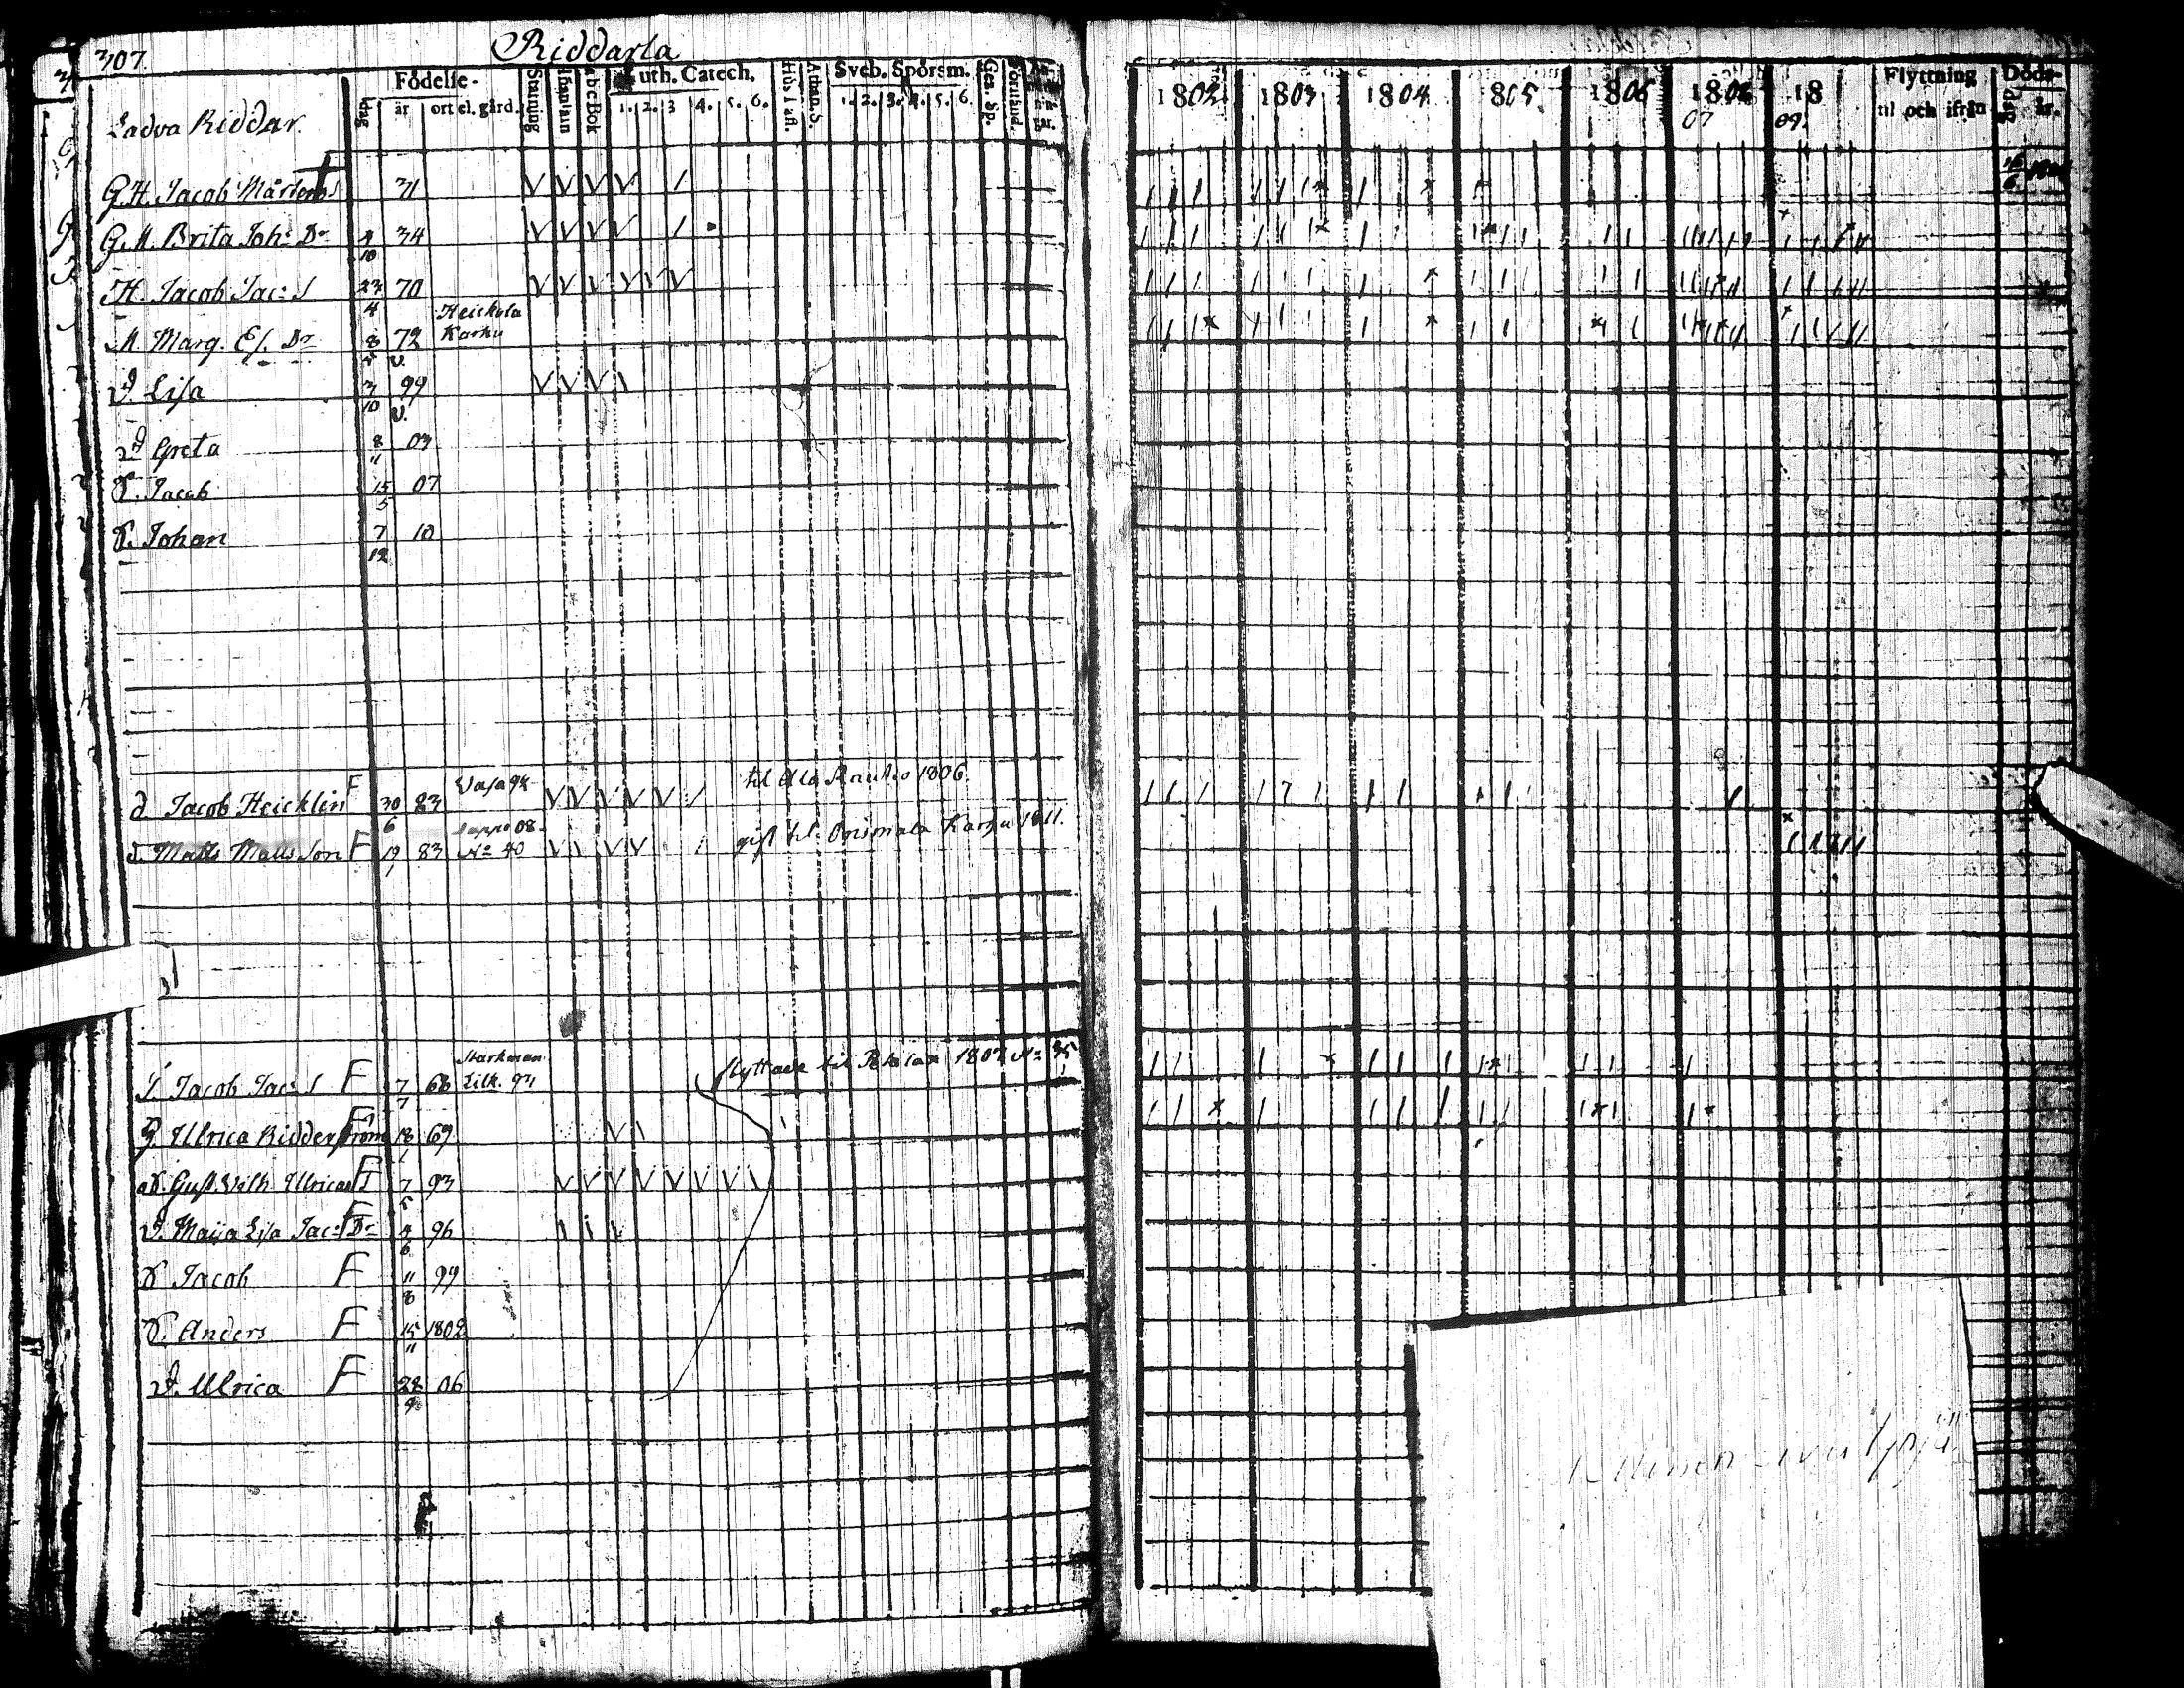 307.
Riddarla
Födelse-
dag
år
ort el. gård.
Stafning
Innanläsn
abc Bok
Luth. Catech.
1. 2. 3 4. 5. 6.
Athan. S.
Sveb. Spörsm.
1. 2. 3. 4. 5. 6.
Gen. Sp.
Förstånd.
1802 1803 1804 1805 1806 1808 18
07 09.
Flyttning
til och ifrån
Döds-
dag
år.
Ladva Riddar.
G.H. Jacob Mårtens S 31
G.M. Brita Joh: Dr 4/10 34
H. Jacob Jac: S 23/4 70
M Marg. Es. Dr 8/5 72 Heickola Karhu
D. Lisa 3/10 99
D Greta 8/11 03
S. Jacob 15/5 07
S. Johan 7/12 10
d Jacob Heicklin F 30/6 83 Vasa 94 til Ala Rautio 1806.
d. Matts Matts Son F 19/1 83 Lappo 08. No 40 gift til Karhu 1811.
S. Jacob Jac: S F 7/7 66 Starkman Lillk. 94 flyttade til Petalax 1807 No 35
H. Ulrica Ridderström F 18/1 69
oS. Gust. Wilh. Ulricas S F 7/5 93
D. Maija Lisa Jac: Dr F 4/6 96
S Jacob F 11/8 99
S. Anders F 15/11 1802
D. Ulrica F 28/9 06